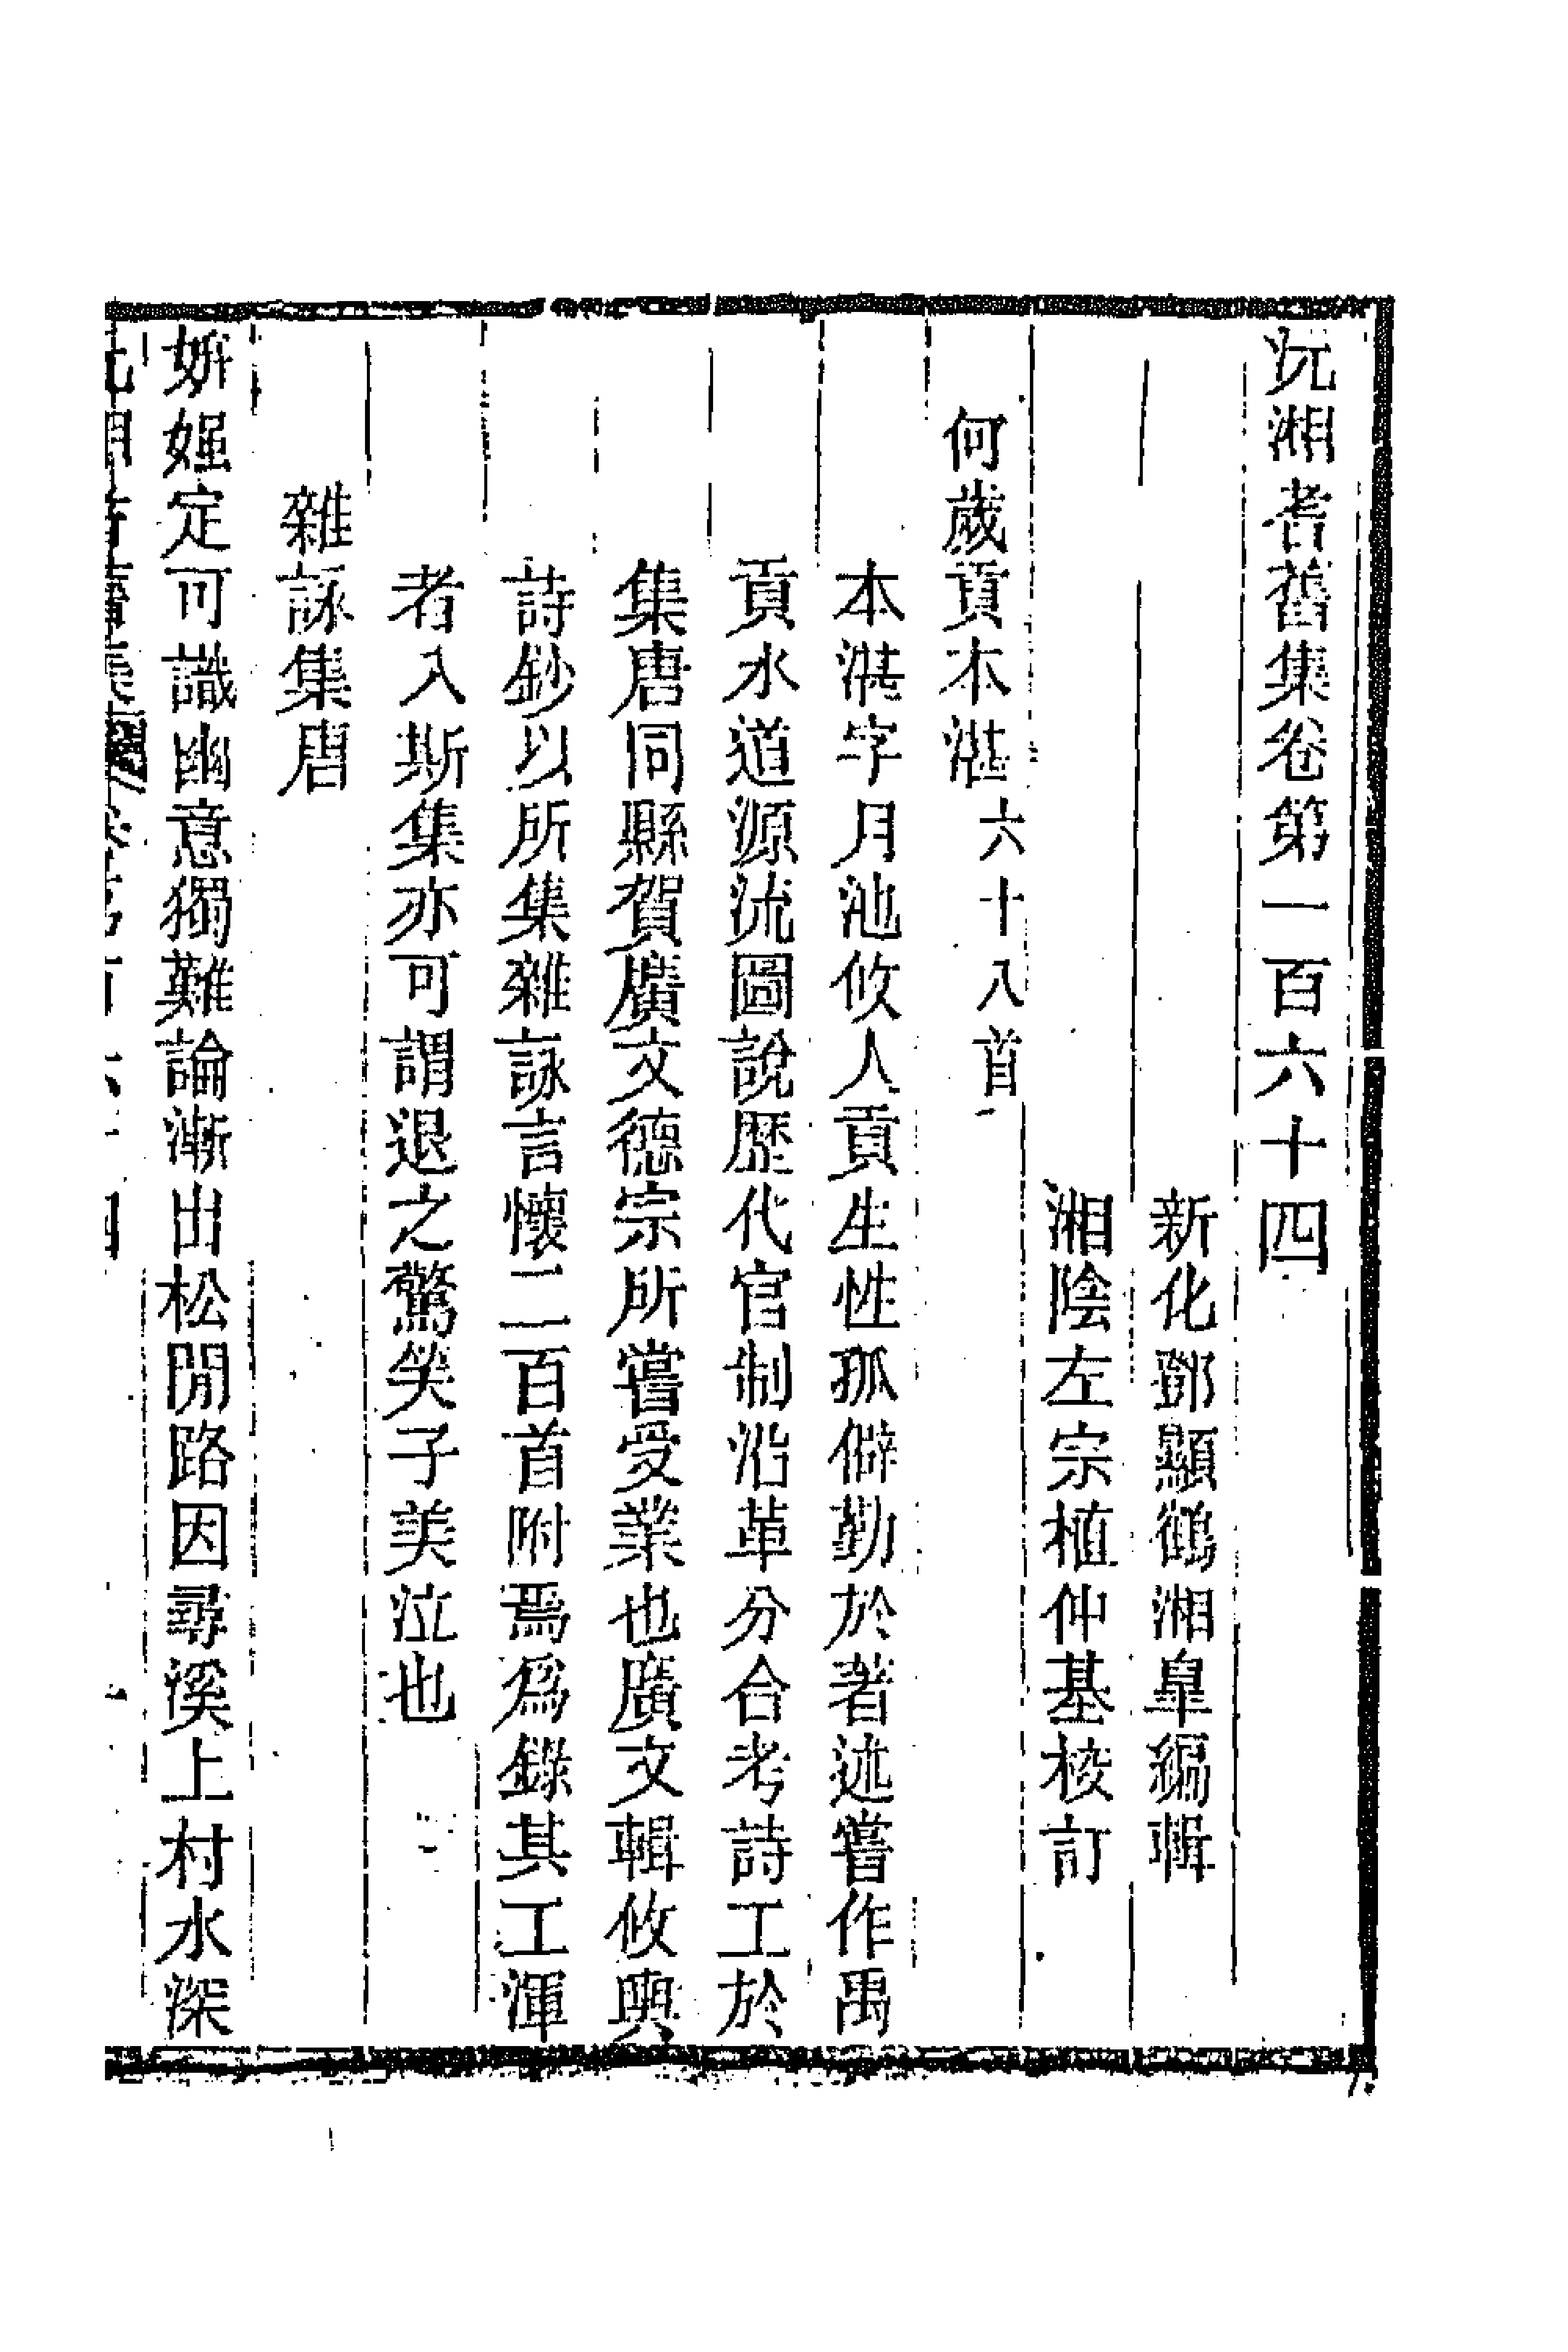 沅湘耆舊集卷第一百六十四
新化鄧顯鶴湘臯編輯
湘陰左宗植仲基校訂
何歲貢本湛六十八首
本湛字月池攸人貢生性孤僻勤於著述嘗作禹
貢水道源流圖說歷代官制沿革分合考詩工於
集唐同縣賀廣文德宗所嘗受業也廣文輯攸輿
詩鈔以所集雜詠言懷二百首附焉爲錄其工渾
者入斯集亦可謂退之驚笑子美泣也
雜詠集唐
妍媸定可識幽意獨難論漸出松閒路因尋溪上村水深